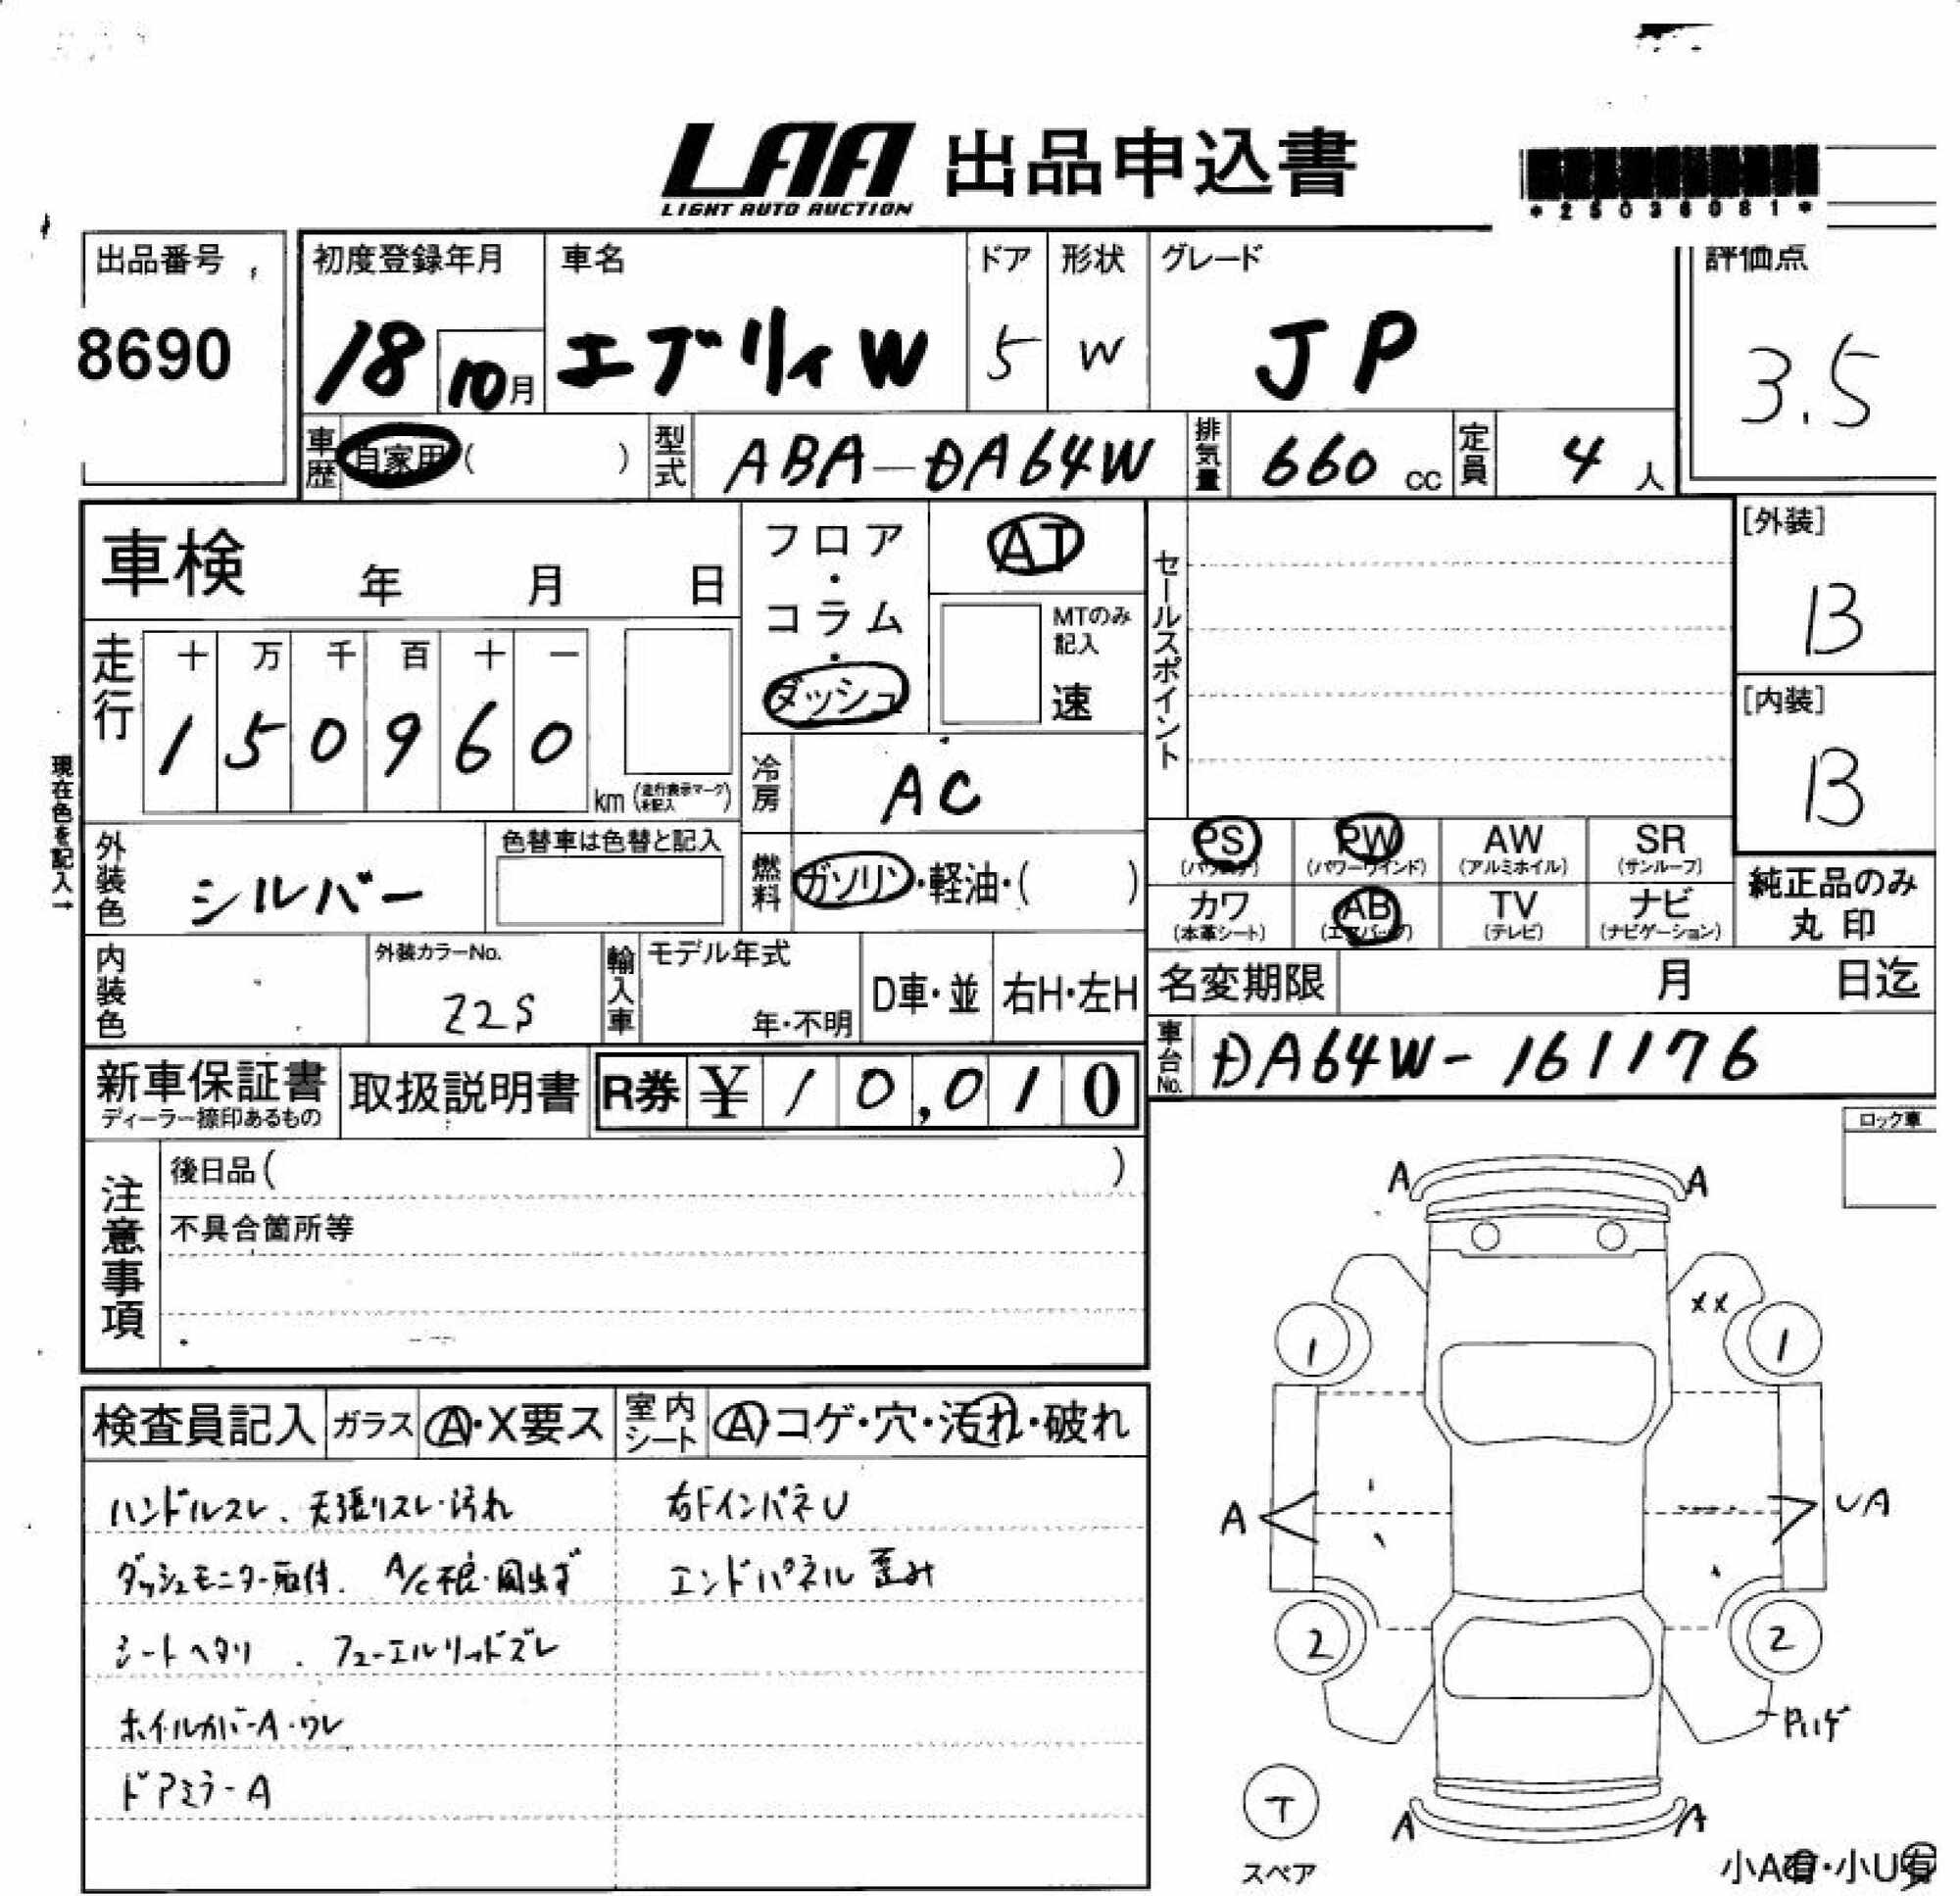 LAA 出品申込書
LIGHT AUTO AUCTION
*25036081*
出品番号
8690
初度登録年月
18 10月
車名
エブリィW
ドア
5
形状
W
グレード
JP
評価点
3.5
車歴 自家用( )
型式 ABA-DA64W
排気量 660 cc
定員 4 人
車検 年 月 日
フロア・コラム・ダッシュ
AT
MTのみ記入
速
セールスポイント
[外装]
B
[内装]
B
走行
十 万 千 百 十 一
1 5 0 9 6 0 km (走行表示マークを記入)
現在色を記入→
冷房 AC
外装色 シルバー
色替車は色替と記入
燃料 ガソリン・軽油・( )
PS (パワステ)
PW (パワーウインド)
AW (アルミホイル)
SR (サンルーフ)
カワ (本革シート)
AB (エアバッグ)
TV (テレビ)
ナビ (ナビゲーション)
純正品のみ
丸印
内装色
外装カラーNo.
Z2S
輸入車
モデル年式
年・不明
D車・並
右H・左H
名変期限 月 日迄
車台No. DA64W-161176
新車保証書
ディーラー捺印あるもの
取扱説明書
R券 ¥10,010
注意事項
後日品( )
不具合箇所等
ロック車
検査員記入
ガラス A・X要ス
室内シート A・コゲ・穴・汚れ・破れ
ハンドルスレ、天張りスレ・汚れ
ダッシュモニター取付、A/C不良・風出ず
シートヘタリ、フューエルリッドズレ
ホイルカバーA・ワレ
ドアミラーA
右FインパネU
エンドパネル歪み
A A
XX
1 1
A UA
2 2
P.ハゲ
T
スペア
A A
小A有・小U有